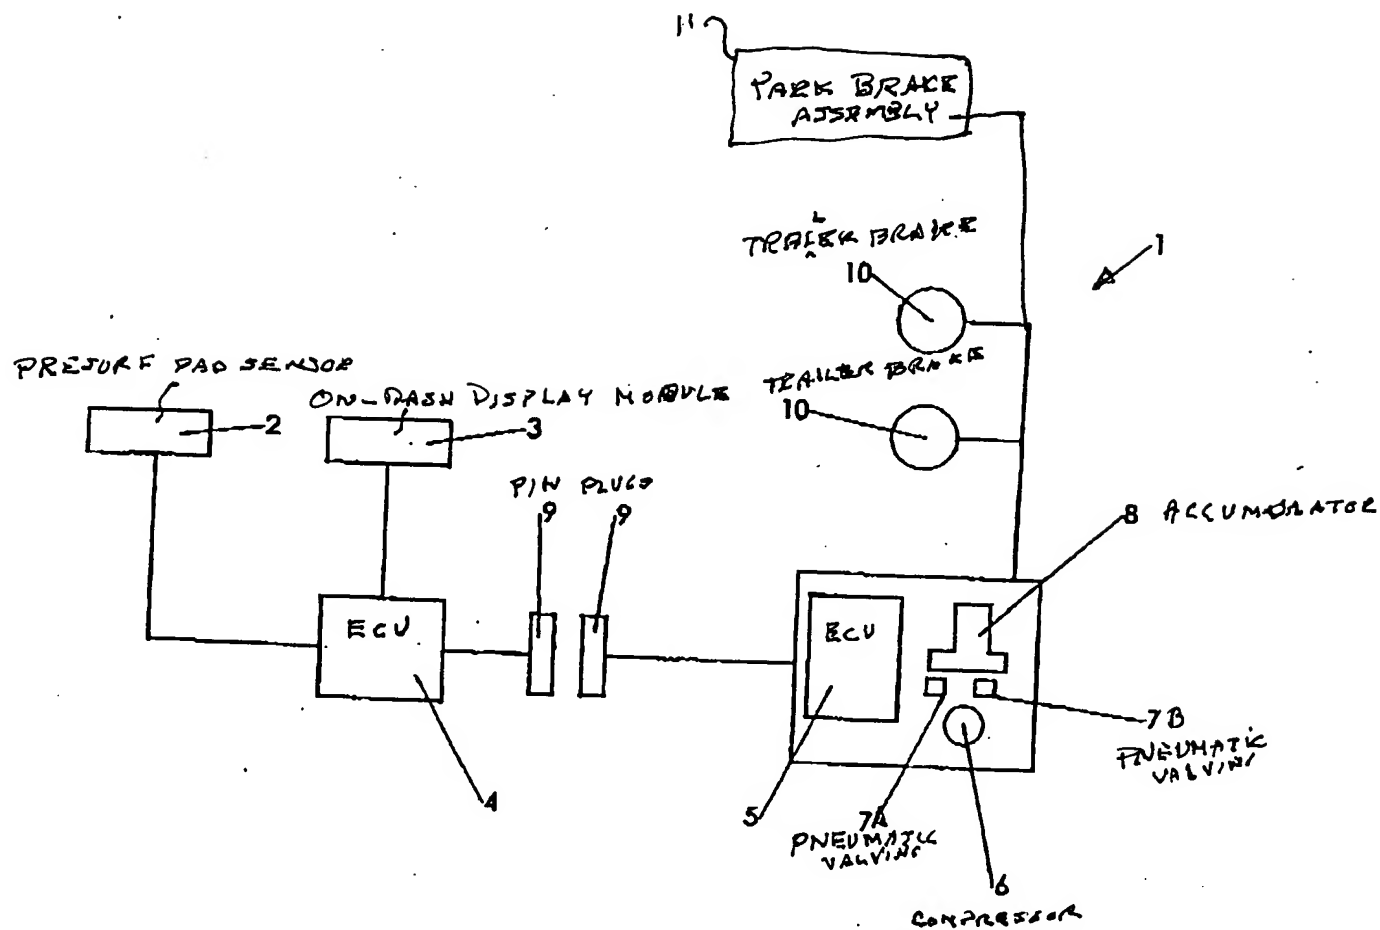 11
PARK BRAKE
ASSEMBLY
TRAILER BRAKE
10
1
PRESURE PAD SENSOR
2
ON-DASH DISPLAY MODULE
3
TRAILER BRAKE
10
PIN PLUGS
9 9
8 ACCUMULATOR
ECU
4
ECU
5
7B
PNEUMATIC
VALVING
7A
PNEUMATIC
VALVING
6
COMPRESSOR